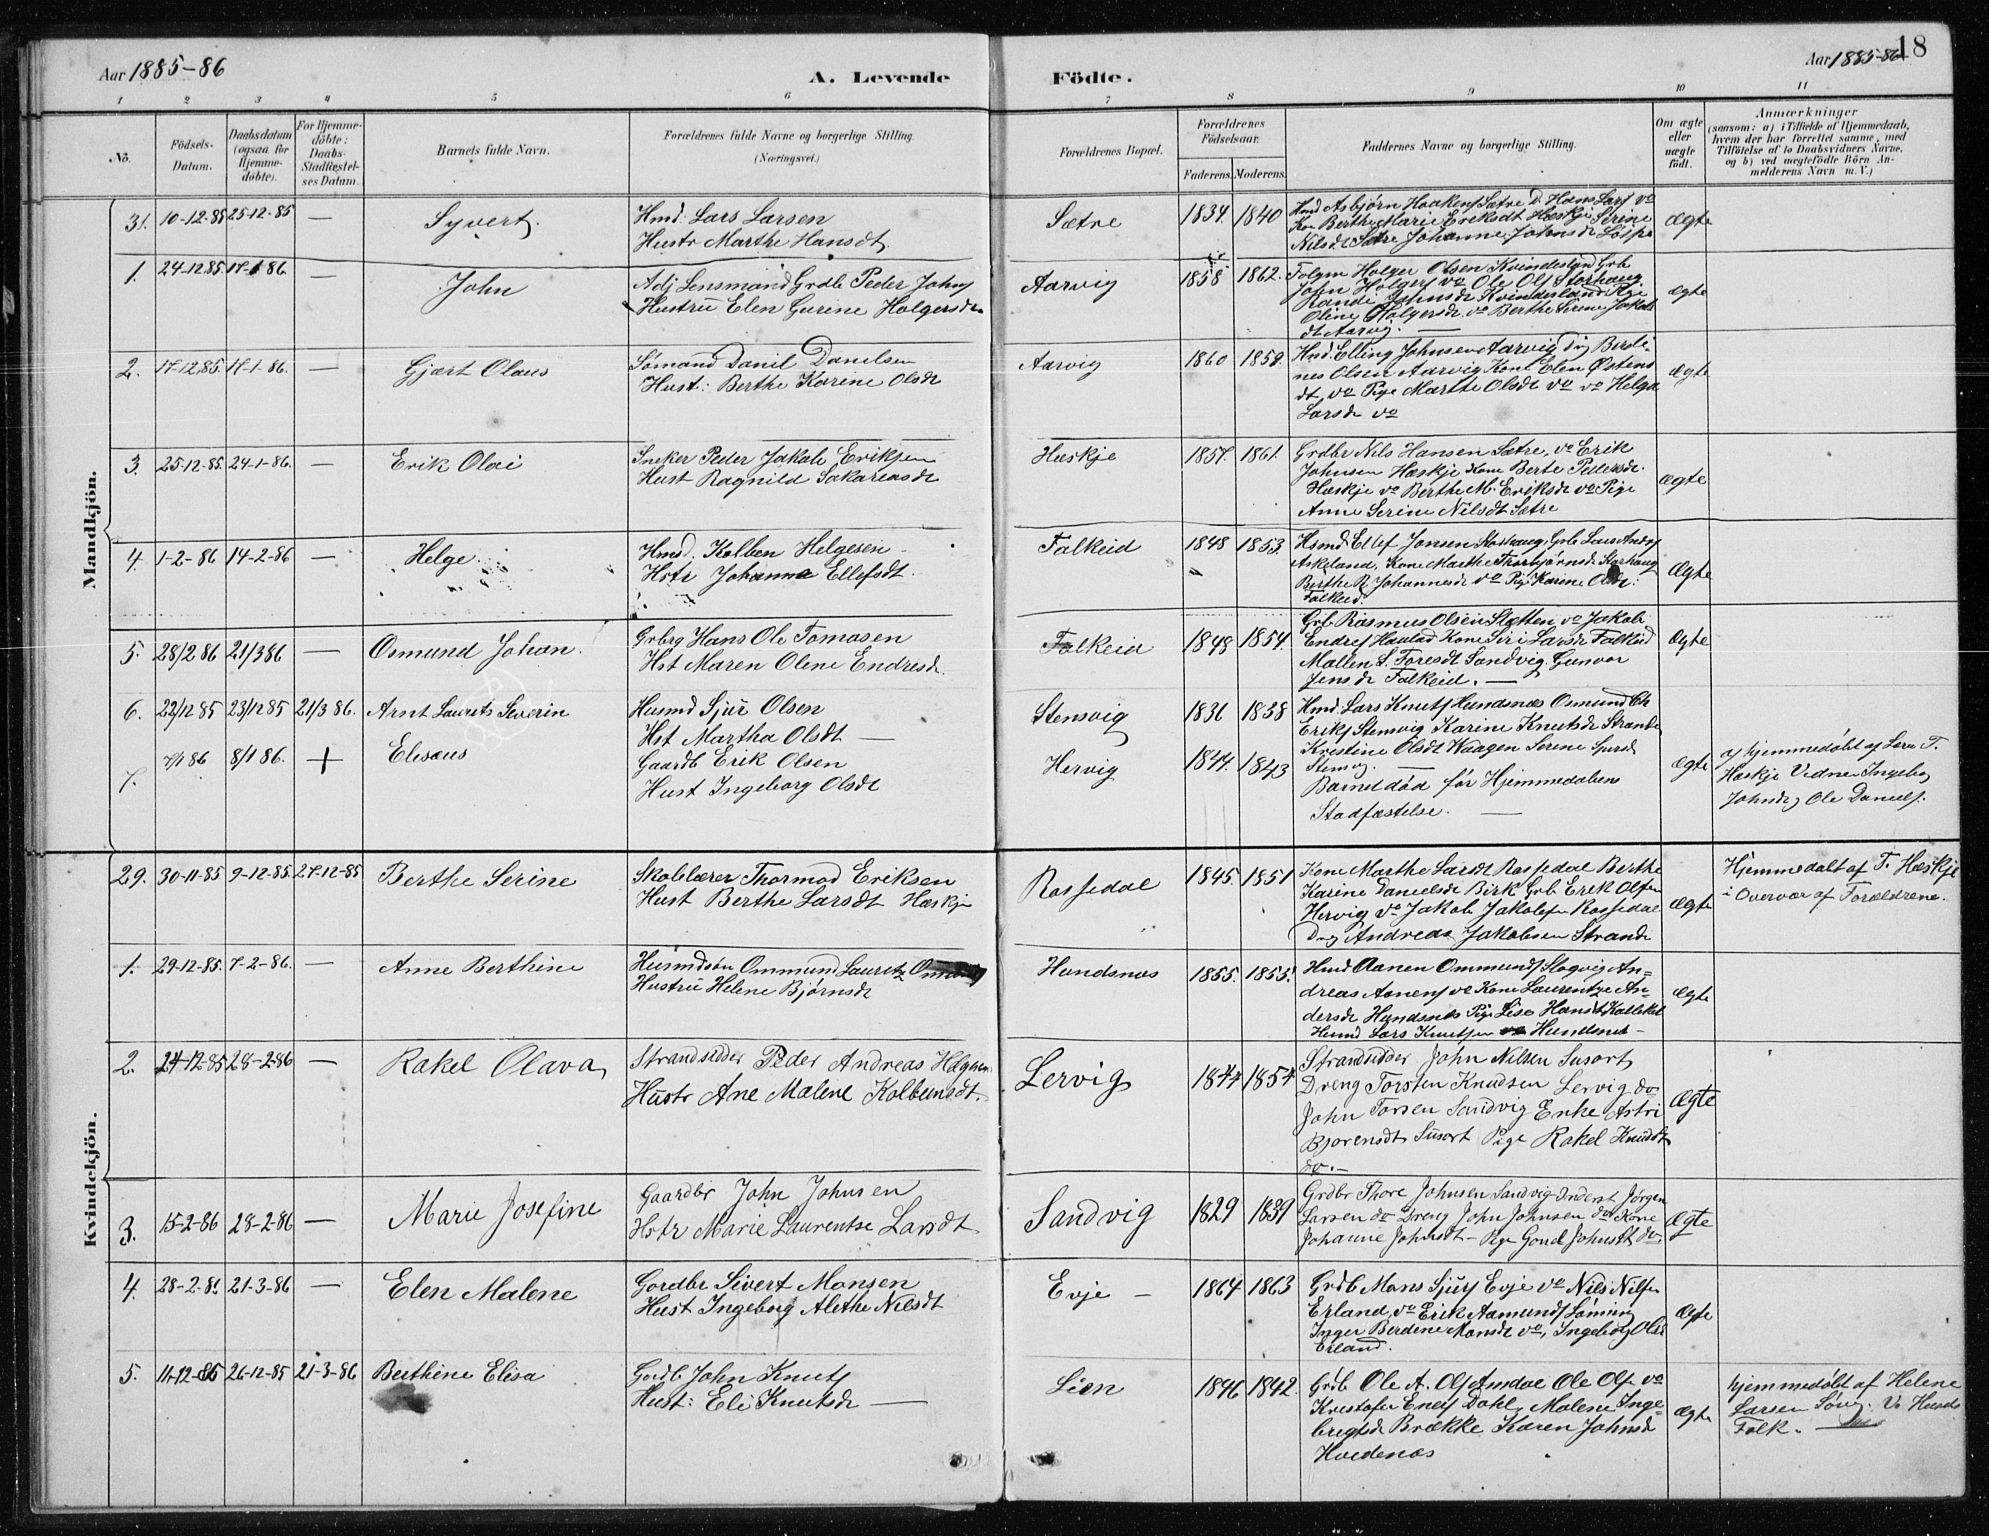 Aar 1885-86
A. Levende
Födte.
Aar 1885-86
18
1 2 3 4 5 6 7 8 9 10 11
No.
Födsels-
Datum.
Daabsdatum
(ogsaa for
Hjemme-
döbte).
For Hjemme-
döbte:
Daabs-
Stadfæstel-
ses Datum.
Barnets fulde Navn.
Forældrenes fulde Navne og borgerlige Stilling.
(Næringsvei.)
Forældrenes Bopæl.
Forældrenes
Födselsaar.
Faderens. Moderens.
Faddernes Navne og borgerlige Stilling.
Om ægte
eller
uægte
født.
Anmærkninger
(saasom: a) i Tilfælde af Hjemmedaab,
hvem der har forrettet samme, med
Tilføielse af to Daabsvidners Navne,
og b) ved uægtefödte Börn An-
melderens Navn m. V.)
Mandkjön.
31. 10-12-85 25-12-85 — Syvert.
Hmd. Lars Larsen
Hustr Marthe Hansdt.
Sætre 1834. 1840
Hmd Asbjørn Haakens Sætre D. Hans Lars vo
Kone Berthe Marie Eriksdt Hæskje Serine
Nilsdt Sætre Johanne Johnsdt
Ægte
1. 24-12 85 17-1 86. — John
Adj Lensmand Grdb Peder Johns
Hustru Elen Gurine Holgersdt
Aarvig 1858 1862.
Folgm Holger Olsen Kvindesland Grb
John Holgers vo Ole Ols Storhaug.
Rande Johnsdt Kvindesland Pige
Oline Holgersdt vo Berthe Serine Jakob
dt Aarvig. —
Ægte
2. 17-12 85. 17-1-86. — Gjært Olaus
Sømand Danil Danielsen
Hust: Berthe Karine Olsdt
Aarvig 1860 1858.
Hmd. Elling Johnsen Aarvig Dg Berdi-
nes Olsen Aarvig Kone Elen Østens
dt vo Pige Marthe Olsdt vo vo Helga
Larsdt vo
Ægte
3. 25-12-85. 24-1-86. — Erik Olai
Sneker Peder Jakob Eriksen
Hust Ragnild Sakariasdt
Hæskje 1857. 1861.
Grdbr Nils Hansen Sætre, vo Erik
Johnsen Hæskje Kone Berte Pedersdt.
Hæskje vo Berthe M. Eriksdt vo Pige
Anne Serine Nilsdt Sætre
Ægte
4. 1-2-86 14-2-86 — Helge
Hmd. Kolben Helgesen
Hstr Johanna Ellefsdt
Falkeid 1848 1853.
Hsmd Ellef Jonsen Storhaug. Grb Lars Anders
Askeland. Kone Marthe Thorbjørnsdt Storhaug
Berthe R Johannesdt vo Pige Karine Olsdt.
Falkeid.
Ægte
5. 28/2 86 21/3 86 — Osmund Johan.
Grbrg Hans Ole Tomasen
Hst Maren Olene Endresdt.
Falkeid 1848 1854.
Grb Rasmus Olsen Sletten vo Jakob
Endres Hauland Kone Siri Larsdt Falkeid
Mallen S. Toresdt Sandvig. Gunvor
Jensdt Falkeid. —
Ægte
6. 22/12 85 23/12 85 21/3 86. Arnt Laurits Severin
Husmd Sjur Olsen
Hst Martha Olsdt —
Stensvig 1831 1838
Hmd. Lars Knuts Hundsnæs Osmund Ch
Eriks Stensvig Karine Knutsdt Strande
Kristine Olsdt Waagen Serine Sjursdt
Stensv. —
7. 7/1 86 8/1 86. + Eliseus
Gaardb Erik Olsen
Hust Ingeborg Olsdt
Hervig 1844. 1843
Barnet død før Hjemmedaabens
Stadfæstelse. —
Ægte
a) hjemmedøbt af Lærer T.
Hæskje Vidner Ingeborg
Johnsdt og Ole Daniels.
Kvindekjön.
29. 30-11-85 9-12-85. 27-12-85 Berthe Serine
Skolelærer Thormod Eriksen
Hust Berthe Larsdt Hæskje
Rossedal 1845. 1851
Kone Marthe Larsdt Rossedal Berthe
Karine Danielsdt Birk Grb Erik Olsen
Hervig vo Jakob Jakobsen Rossedal
Drg Andreas Jakobsen Strande
Ægte
Hjemmedøbt af T. Hæskje
i Overvær af Forældrene.
1. 29-12-85. 7-2-86. — Anne Berthine
Husmdsøn Ommund Lauritz
Hustru Helene Bjørnsdt
Hundsnæs 1855. 1855.
Hmd Aanen Ommunds Slogvig An-
dreas Aanens vo Kone Laurentze An-
dersdt Hundsnæs Pige Lise Hansdt
Husmd Lars Knutsen Hundsnæs —
Ægte
2. 24-12-85 28-2-86 — Rakel Olava
Strandsidder Peder Andreas
Hustr Ane Malene Kolbeinsdt.
Lervig 1844 1854
Strandsidder John Nilsen Susort
Dreng Torsten Knudsen Lervig do
John Torsen Sandvig Enke Astri
Bjorensdt Susort Pige Rakel Knudsdt
do. —
Ægte
3. 15-2-86 28-2-86 — Marie Josefine
Gaardbr John Johnsen
Hstr Marie Laurentse Larsdt
Sandvig 1829 1839
Grdbr Thore Johnsen Sandvig Inderst Jørgen
Larsen do Dreng John Johnsen do Kone
Johanne Johnsdt — Pige Gouel Johnsdt do.
Ægte
4. 28-2-86 21-3-86 — Elen Malene
Gordbr Sivert Monsen
Hust Ingeborg Alethe Nilsdt
Evje — 1864 1863
Grdb Mons Sjurs Evje vo Nils Nilsen
Erland, vo Erik Aamunds
Inger Berdene Monsdt vo, Ingeborg Olsdt
Erland.
Ægte
5. 11-12-85 26-12-85 21-3-86 Berthine Elisa
Gordb John Knuts
Hust: Eli Knutsdt —
Lien 1846 1842.
Grdb Ole A. Ols Amdal Ole Ols vo
Kristofer Eneis Dahl, Malene Inge-
brigtsdt Brække Karen Johnsdt
Hvedenæs
Ægte
hjemmedøbt af Helene
Larsen
Folk. —